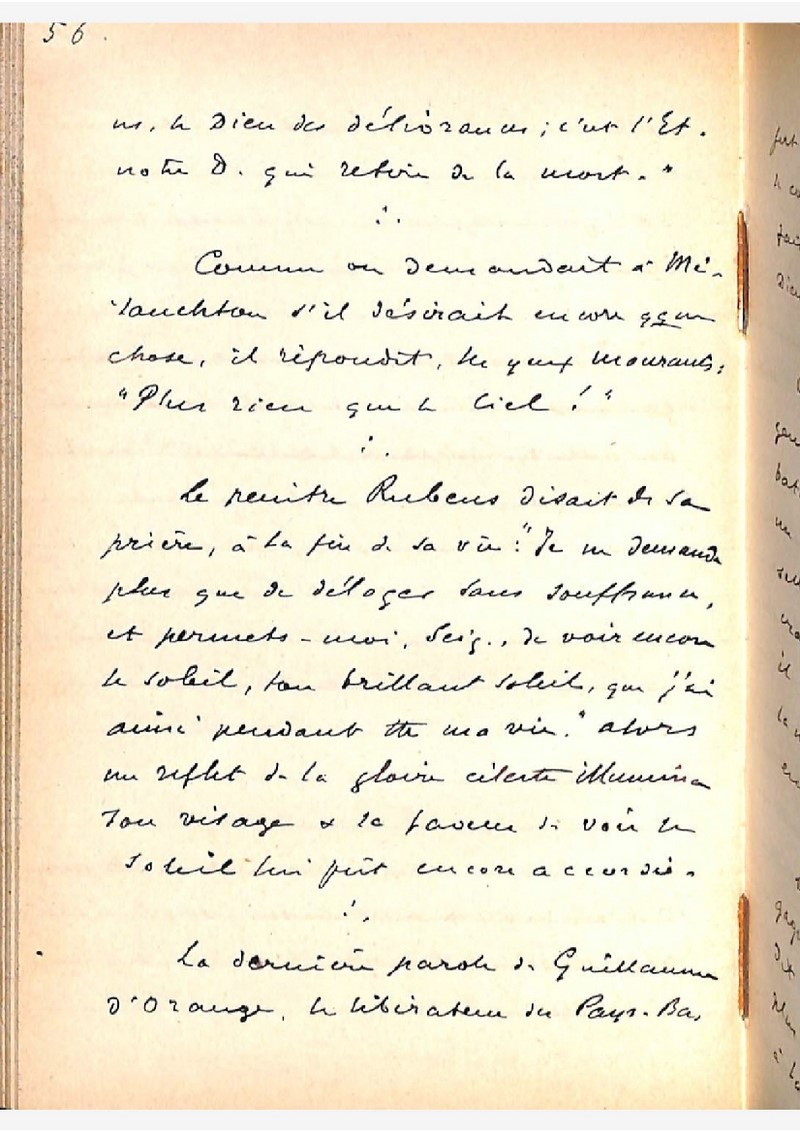 56.
ns, le Dieu des délivrances ; c'est l'Et.
notre D. qui retire de la mort."
Comme on demandait à Mé-
lanchton s'il désirait encore qque
chose, il répondit, les yeux mourants :
"Plus rien que le Ciel !"
Le peintre Rubens disait de sa
prière, à la fin de sa vie : "Je ne demande
plus que de déloger sans souffrance,
et permets-moi, Seig., de voir encore
le soleil, ton brillant soleil, que j'ai
aimé pendant tte ma vie." Alors
un reflet de la gloire céleste illumina
son visage & la faveur de voir le
soleil lui fût encore accordée.
La dernière parole de Guillaume
d'Orange, le libérateur des Pays-Bas,